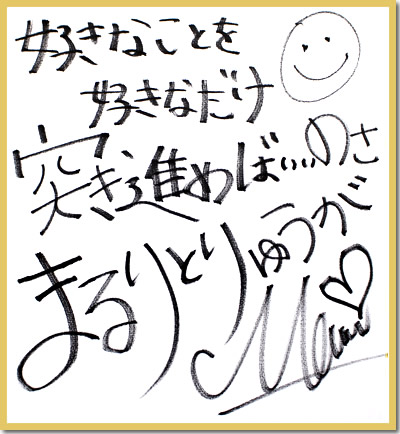 好きなことを
好きなだけ
突き進めばいいのさ
まるりとりゅうが